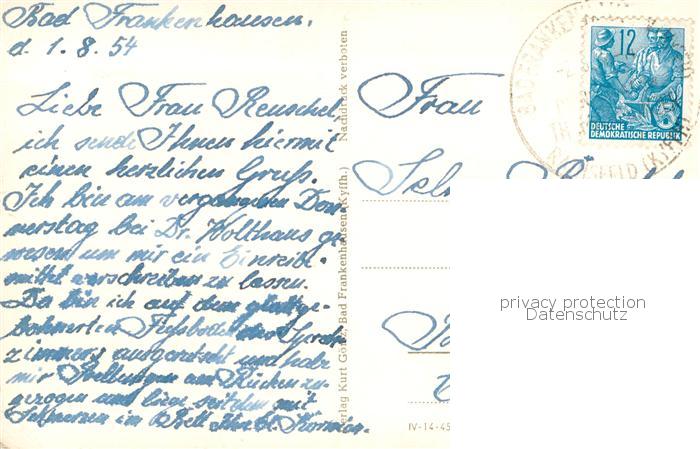 Bad Frankenhausen,
d. 1.8.54
Liebe Frau Renschel,
ich sende Ihnen hiermit
einen herzlichen Gruß.
Ich bin am vergangenen Don
nerstag bei Dr. Wolthaus ge
wesen um mir ein Einreibe-
mittel verschreiben zu lassen.
Da bin ich auf dem glattge-
bohnerten Fußboden des Sprech
zimmers ausgerutscht und habe
mir Prellungen am Rücken zu-
gezogen und liege seitdem mit
Schmerzen im Bett. Ihre
Verlag Kurt Görtz, Bad Frankenhausen (Kyffh.)
Nachdruck verboten
Frau
12
DEUTSCHE
DEMOKRATISCHE REPUBLIK
BAD FRANKENHAUSEN
privacy protection
Datenschutz
IV-14-45